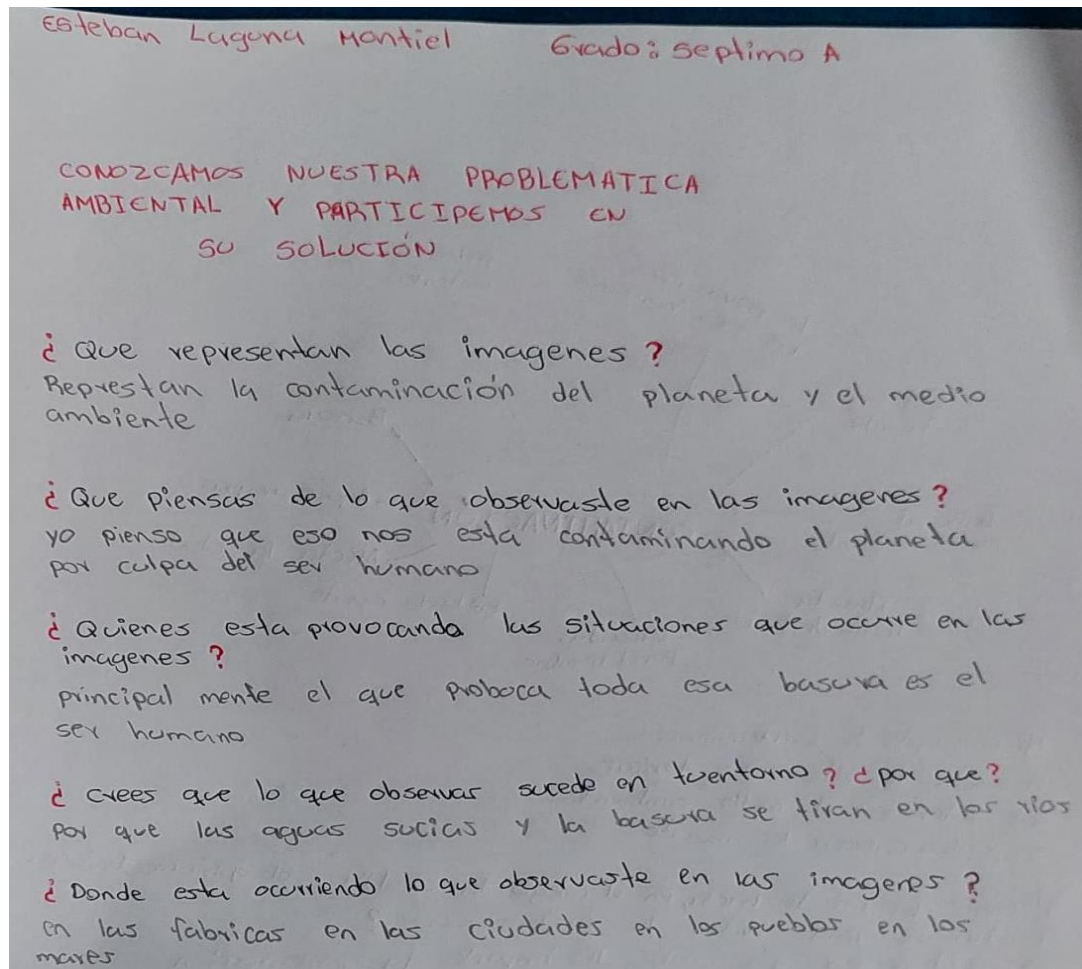 Esteban Laguna Montiel Grado: septimo A
CONOZCAMOS NUESTRA PROBLEMATICA
AMBIENTAL Y PARTICIPEMOS EN
SU SOLUCIÓN
¿Que representan las imagenes?
Represtan la contaminación del planeta y el medio
ambiente
¿Que piensas de lo que observaste en las imagenes?
yo pienso que eso nos esta contaminando el planeta
por culpa del ser humano
¿Quienes esta provocando las situaciones que ocurre en las
imagenes?
principal mente el que proboca toda esa basura es el
ser humano
¿crees que lo que observas sucede en tuentorno? ¿por que?
por que las aguas sucias y la basura se tiran en los rios
¿Donde esta ocurriendo lo que observaste en las imagenes?
en las fabricas en las ciudades en los pueblos en los
mares